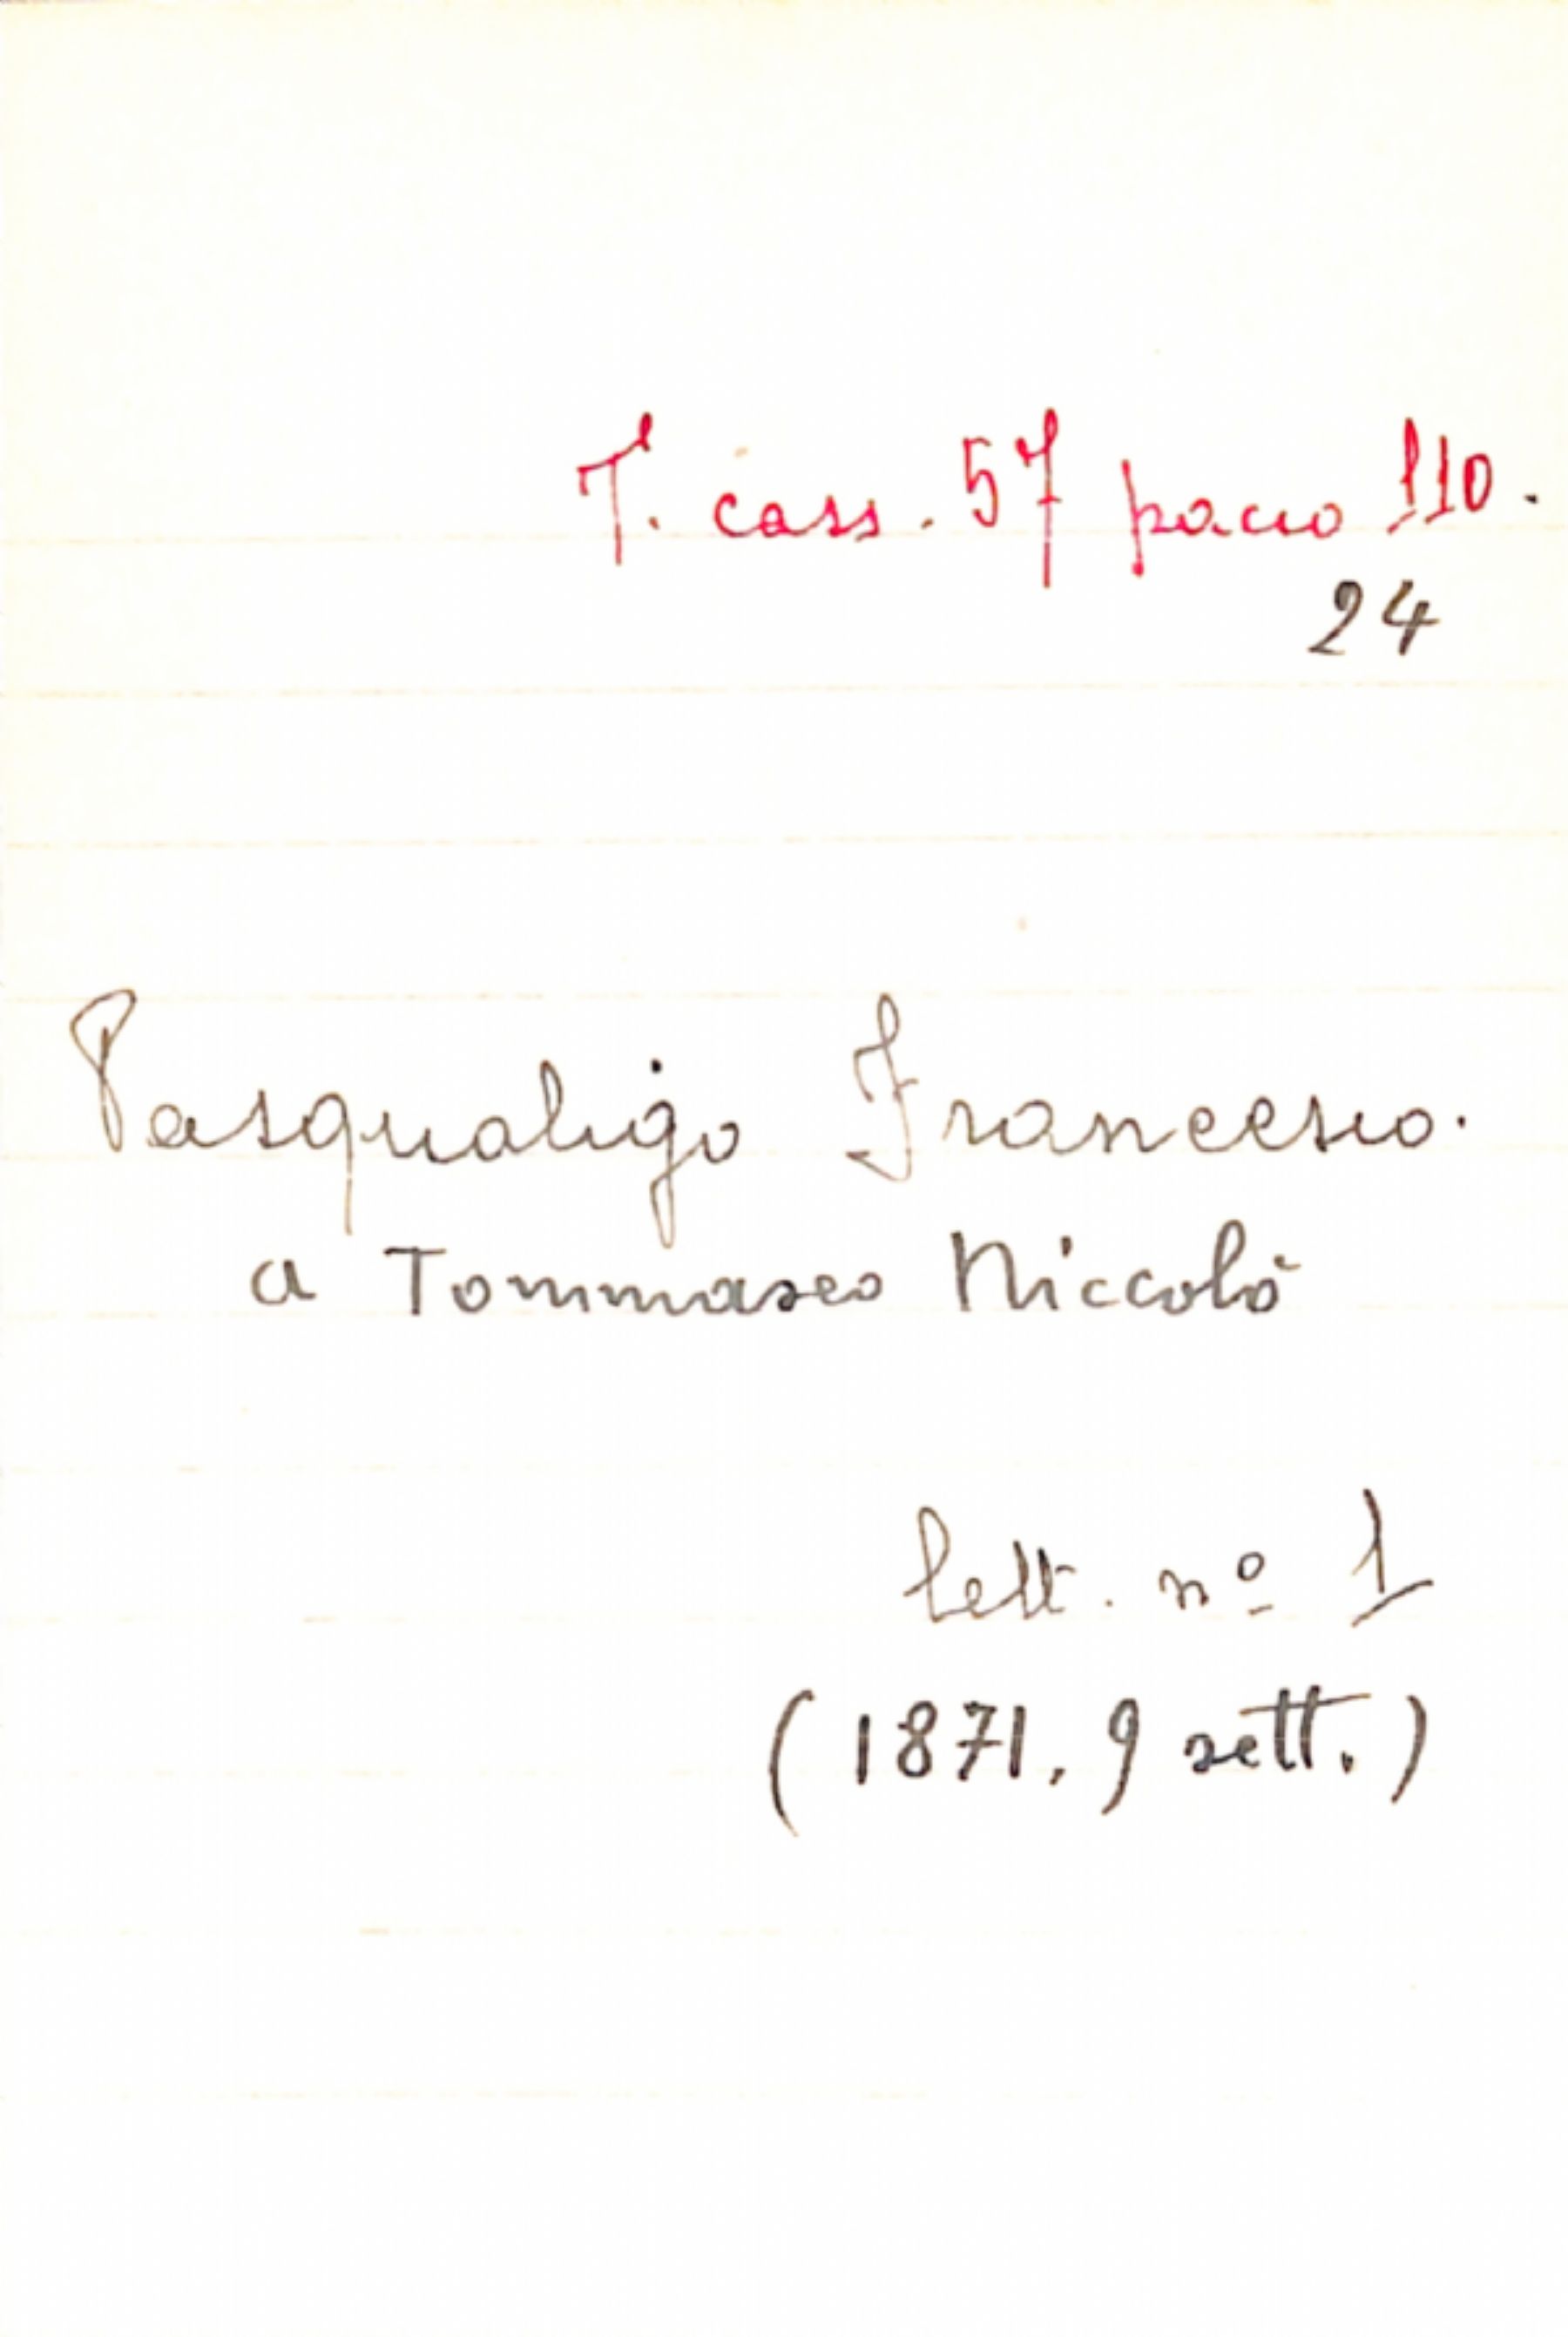 T. cass. 57 pacco 110.
24
Pasqualigo Francesco.
a Tommaseo Niccolò
lett. nº 1
(1871, 9 sett.)